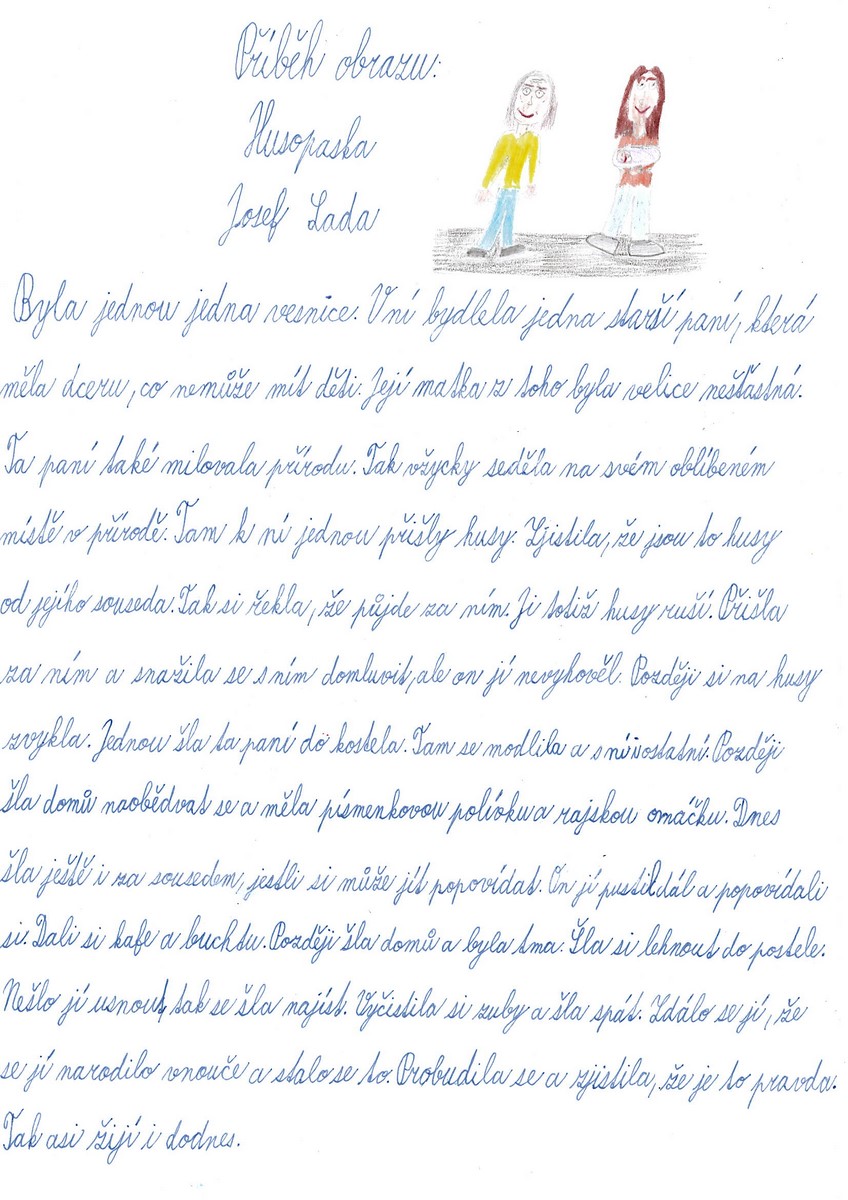 Příběh obrazu:
Husopaska
Josef Lada
Byla jednou jedna vesnice. V ní bydlela jedna starší paní, která
měla dceru, co nemůže mít děti. Její matka z toho byla velice nešťastná.
Ta paní také milovala přírodu. Tak vžycky seděla na svém oblíbeném
místě v přírodě. Tam k ní jednou přišly husy. Zjistila, že jsou to husy
od jejího souseda. Tak si řekla, že půjde za ním. Ji totiž husy ruší. Přišla
za ním a snažila se s ním domluvit, ale on jí nevyhověl. Později si na husy
zvykla. Jednou šla ta paní do kostela. Tam se modlila a s ní i ostatní. Později
šla domů naobědvat se a měla písmenkovou polívku a rajskou omáčku. Dnes
šla ještě i za sousedem, jestli si může jít popovídat. On jí pustil dál a popovídali
si. Dali si kafe a buchtu. Později šla domů a byla tma. Šla si lehnout do postele.
Nešlo jí usnout, tak se šla najíst. Vyčistila si zuby a šla spát. Zdálo se jí, že
se jí narodilo vnouče a stalo se to. Probudila se a zjistila, že je to pravda.
Tak asi žijí i dodnes.